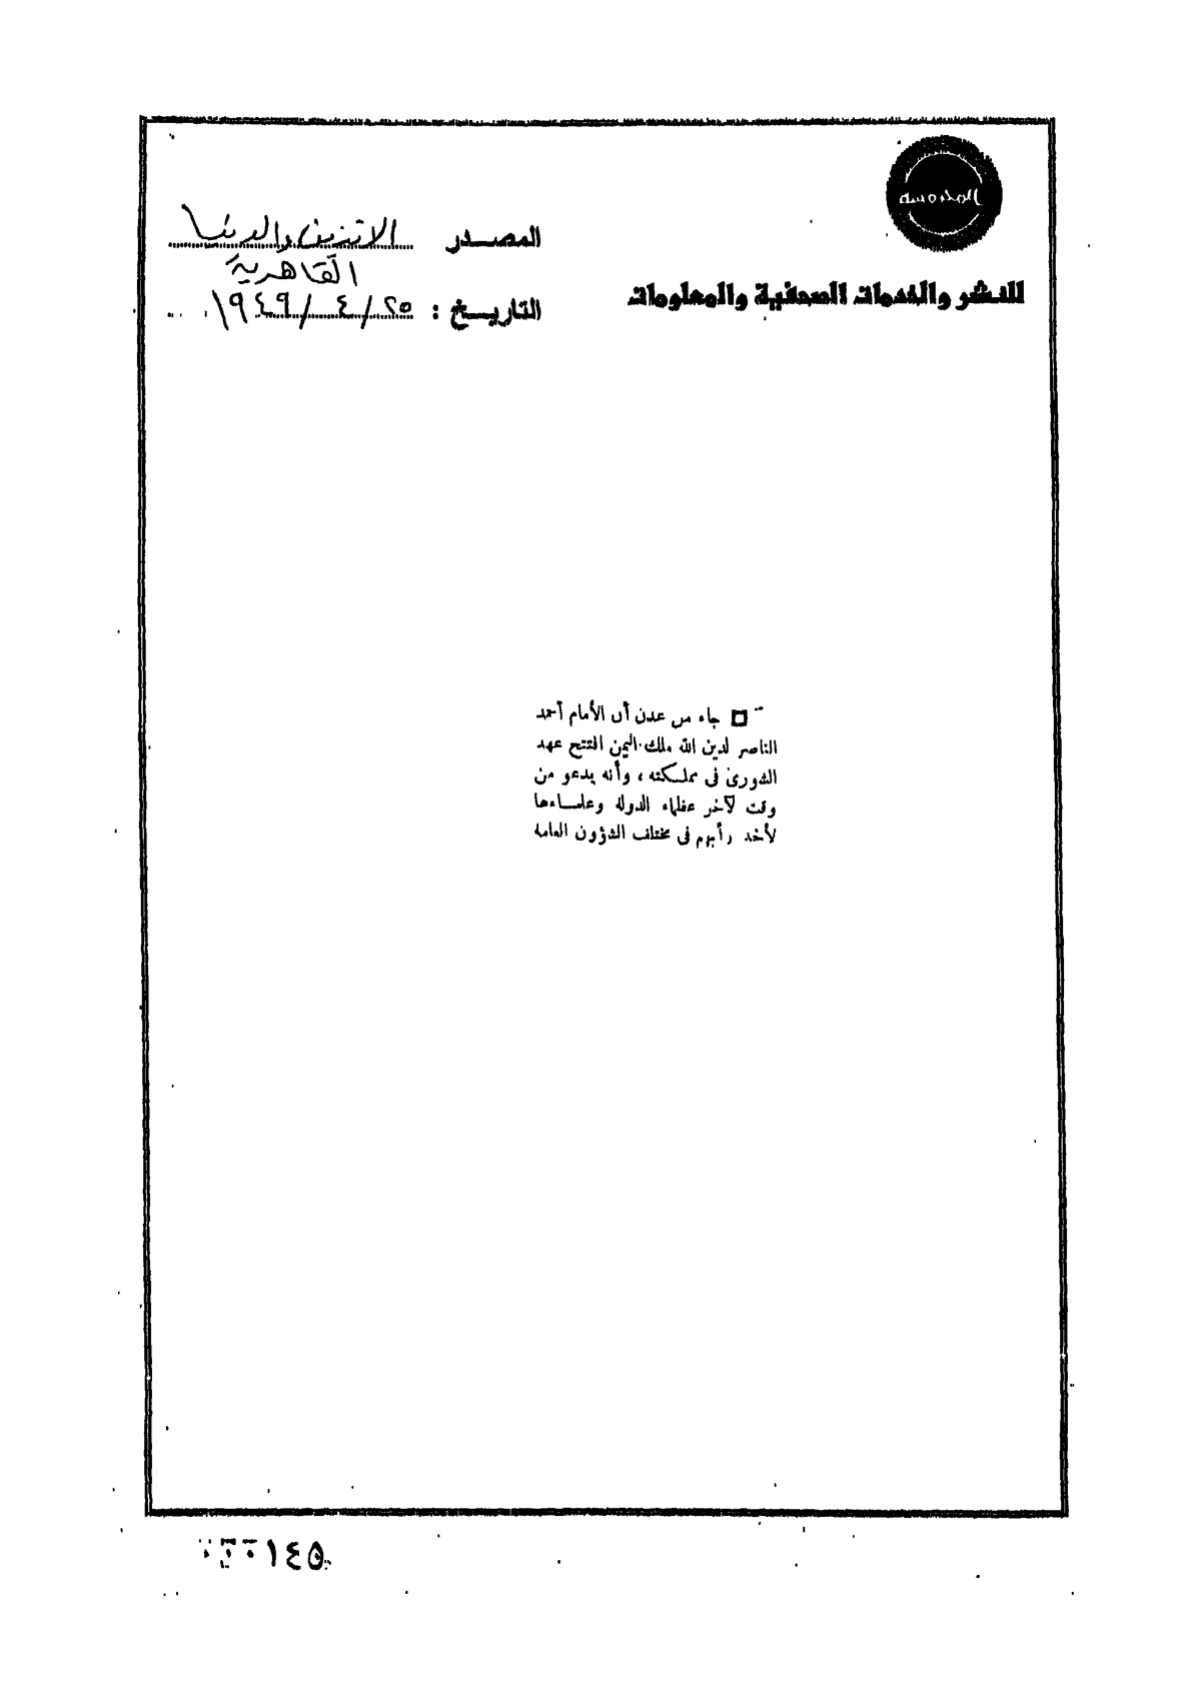 المحروسة
للنشر والخدمات الصحفية والمعلومات
المصدر الاثنين والدنيا
القاهرية
التاريخ : ٢٥/ ٤ /١٩٤٩
جاء من عدن أن الأمام أحمد
الناصر لدين الله ملك اليمن افتتح عهد
الشورى فى مملكته ، وأنه يدعو من
وقت لآخر عظماء الدولة وعلماءها
لأخذ رأيهم فى مختلف الشؤون العامة
٠٠٠١٤٥